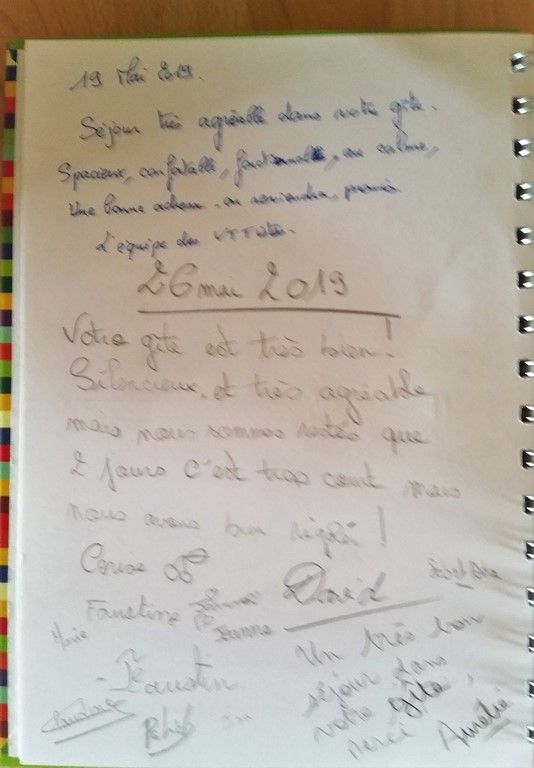 19 Mai 2019.
Séjour très agréable dans votre gîte.
Spacieux, confortable, fonctionnable, au calme,
Une bonne adresse. on reviendra, promis.
L'équipe des VTTistes.
26 mai 2019
Votre gîte est très bien!
Silencieux. et très agréable
mais nous sommes restés que
2 jours c'est trop court mais
nous avons bien rigolé !
Cerise
David
Faustine
Jeanne
Marie
Faustin
Pauline
Un très bon
séjour dans
votre gîte,
merci
Aurélie